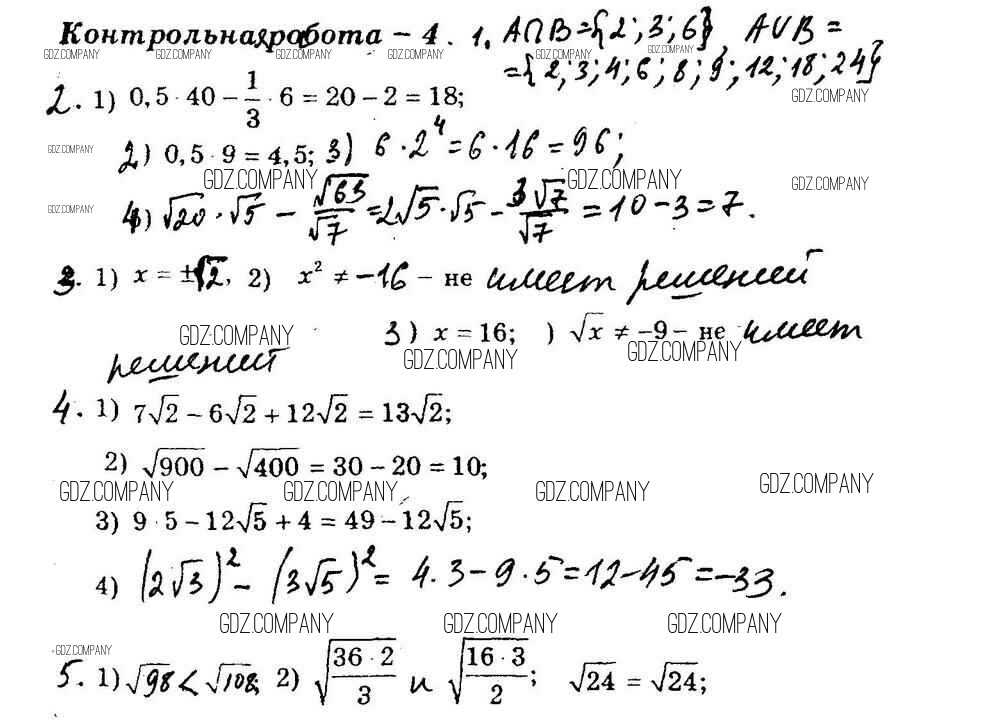 Контрольная работа – 4. 1. A∩B={2; 3; 6}, A∪B =
GDZ.COMPANY GDZ.COMPANY GDZ.COMPANY GDZ.COMPANY GDZ.COMPANY GDZ.COMPANY
={2; 3; 4; 6; 8; 9; 12; 18; 24}
GDZ.COMPANY
2. 1) 0,5 · 40 – 1/3 · 6 = 20 – 2 = 18;
GDZ.COMPANY
2) 0,5 · 9 = 4,5; 3) 6 · 2⁴ = 6 · 16 = 96;
GDZ.COMPANY GDZ.COMPANY GDZ.COMPANY
GDZ.COMPANY
4) √20 · √5 – √63/√7 = 2√5 · √5 – 3√7/√7 = 10 – 3 = 7.
3. 1) x = ±√2, 2) x² ≠ –16 – не имеет решений
GDZ.COMPANY
3) x = 16; ) √x ≠ –9 – не имеет
GDZ.COMPANY GDZ.COMPANY
решений
4. 1) 7√2 – 6√2 + 12√2 = 13√2;
2) √900 – √400 = 30 – 20 = 10;
GDZ.COMPANY GDZ.COMPANY GDZ.COMPANY GDZ.COMPANY
3) 9 · 5 – 12√5 + 4 = 49 – 12√5;
4) (2√3)² – (3√5)² = 4 · 3 – 9 · 5 = 12 – 45 = –33.
GDZ.COMPANY GDZ.COMPANY GDZ.COMPANY
GDZ.COMPANY
5. 1) √98 < √108; 2) √(36 · 2/3) и √(16 · 3/2); √24 = √24;